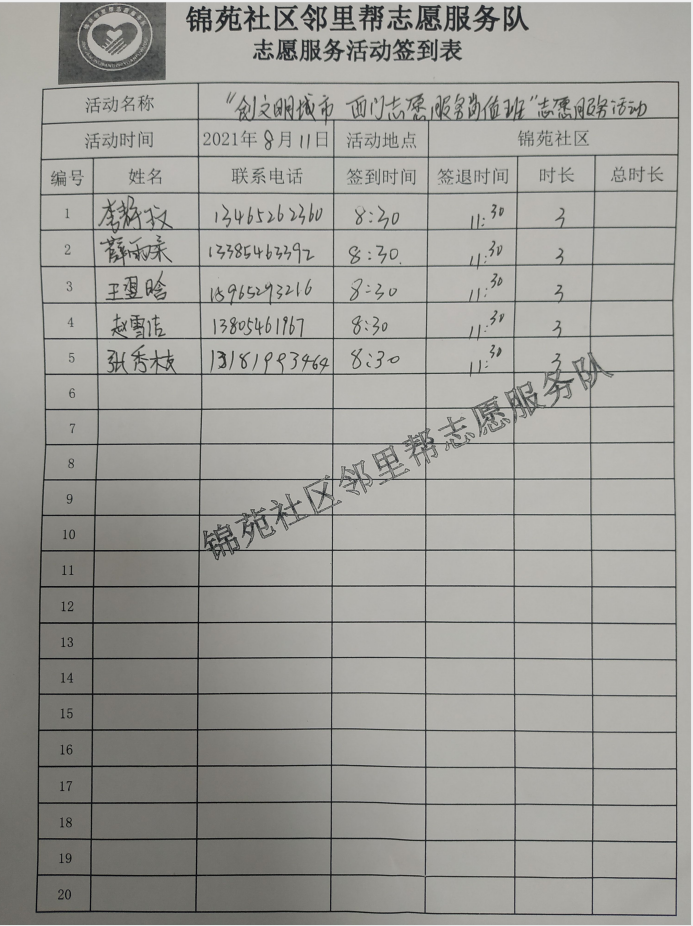 锦苑社区邻里帮志愿服务队
志愿服务活动签到表
活动名称 “创文明城市 西门志愿服务岗值班”志愿服务活动
活动时间 2021年8月11日 活动地点 锦苑社区
编号 姓名 联系电话 签到时间 签退时间 时长 总时长
1 李静文 13465262360 8:30 11:30 3
2 薛雨采 13385463392 8:30 11:30 3
3 王翌晗 15965293216 8:30 11:30 3
4 赵雪洁 13805461967 8:30 11:30 3
5 张秀枝 13181993464 8:30 11:30 3
6
7
8
9
10
11
12
13
14
15
16
17
18
19
20
锦苑社区邻里帮志愿服务队